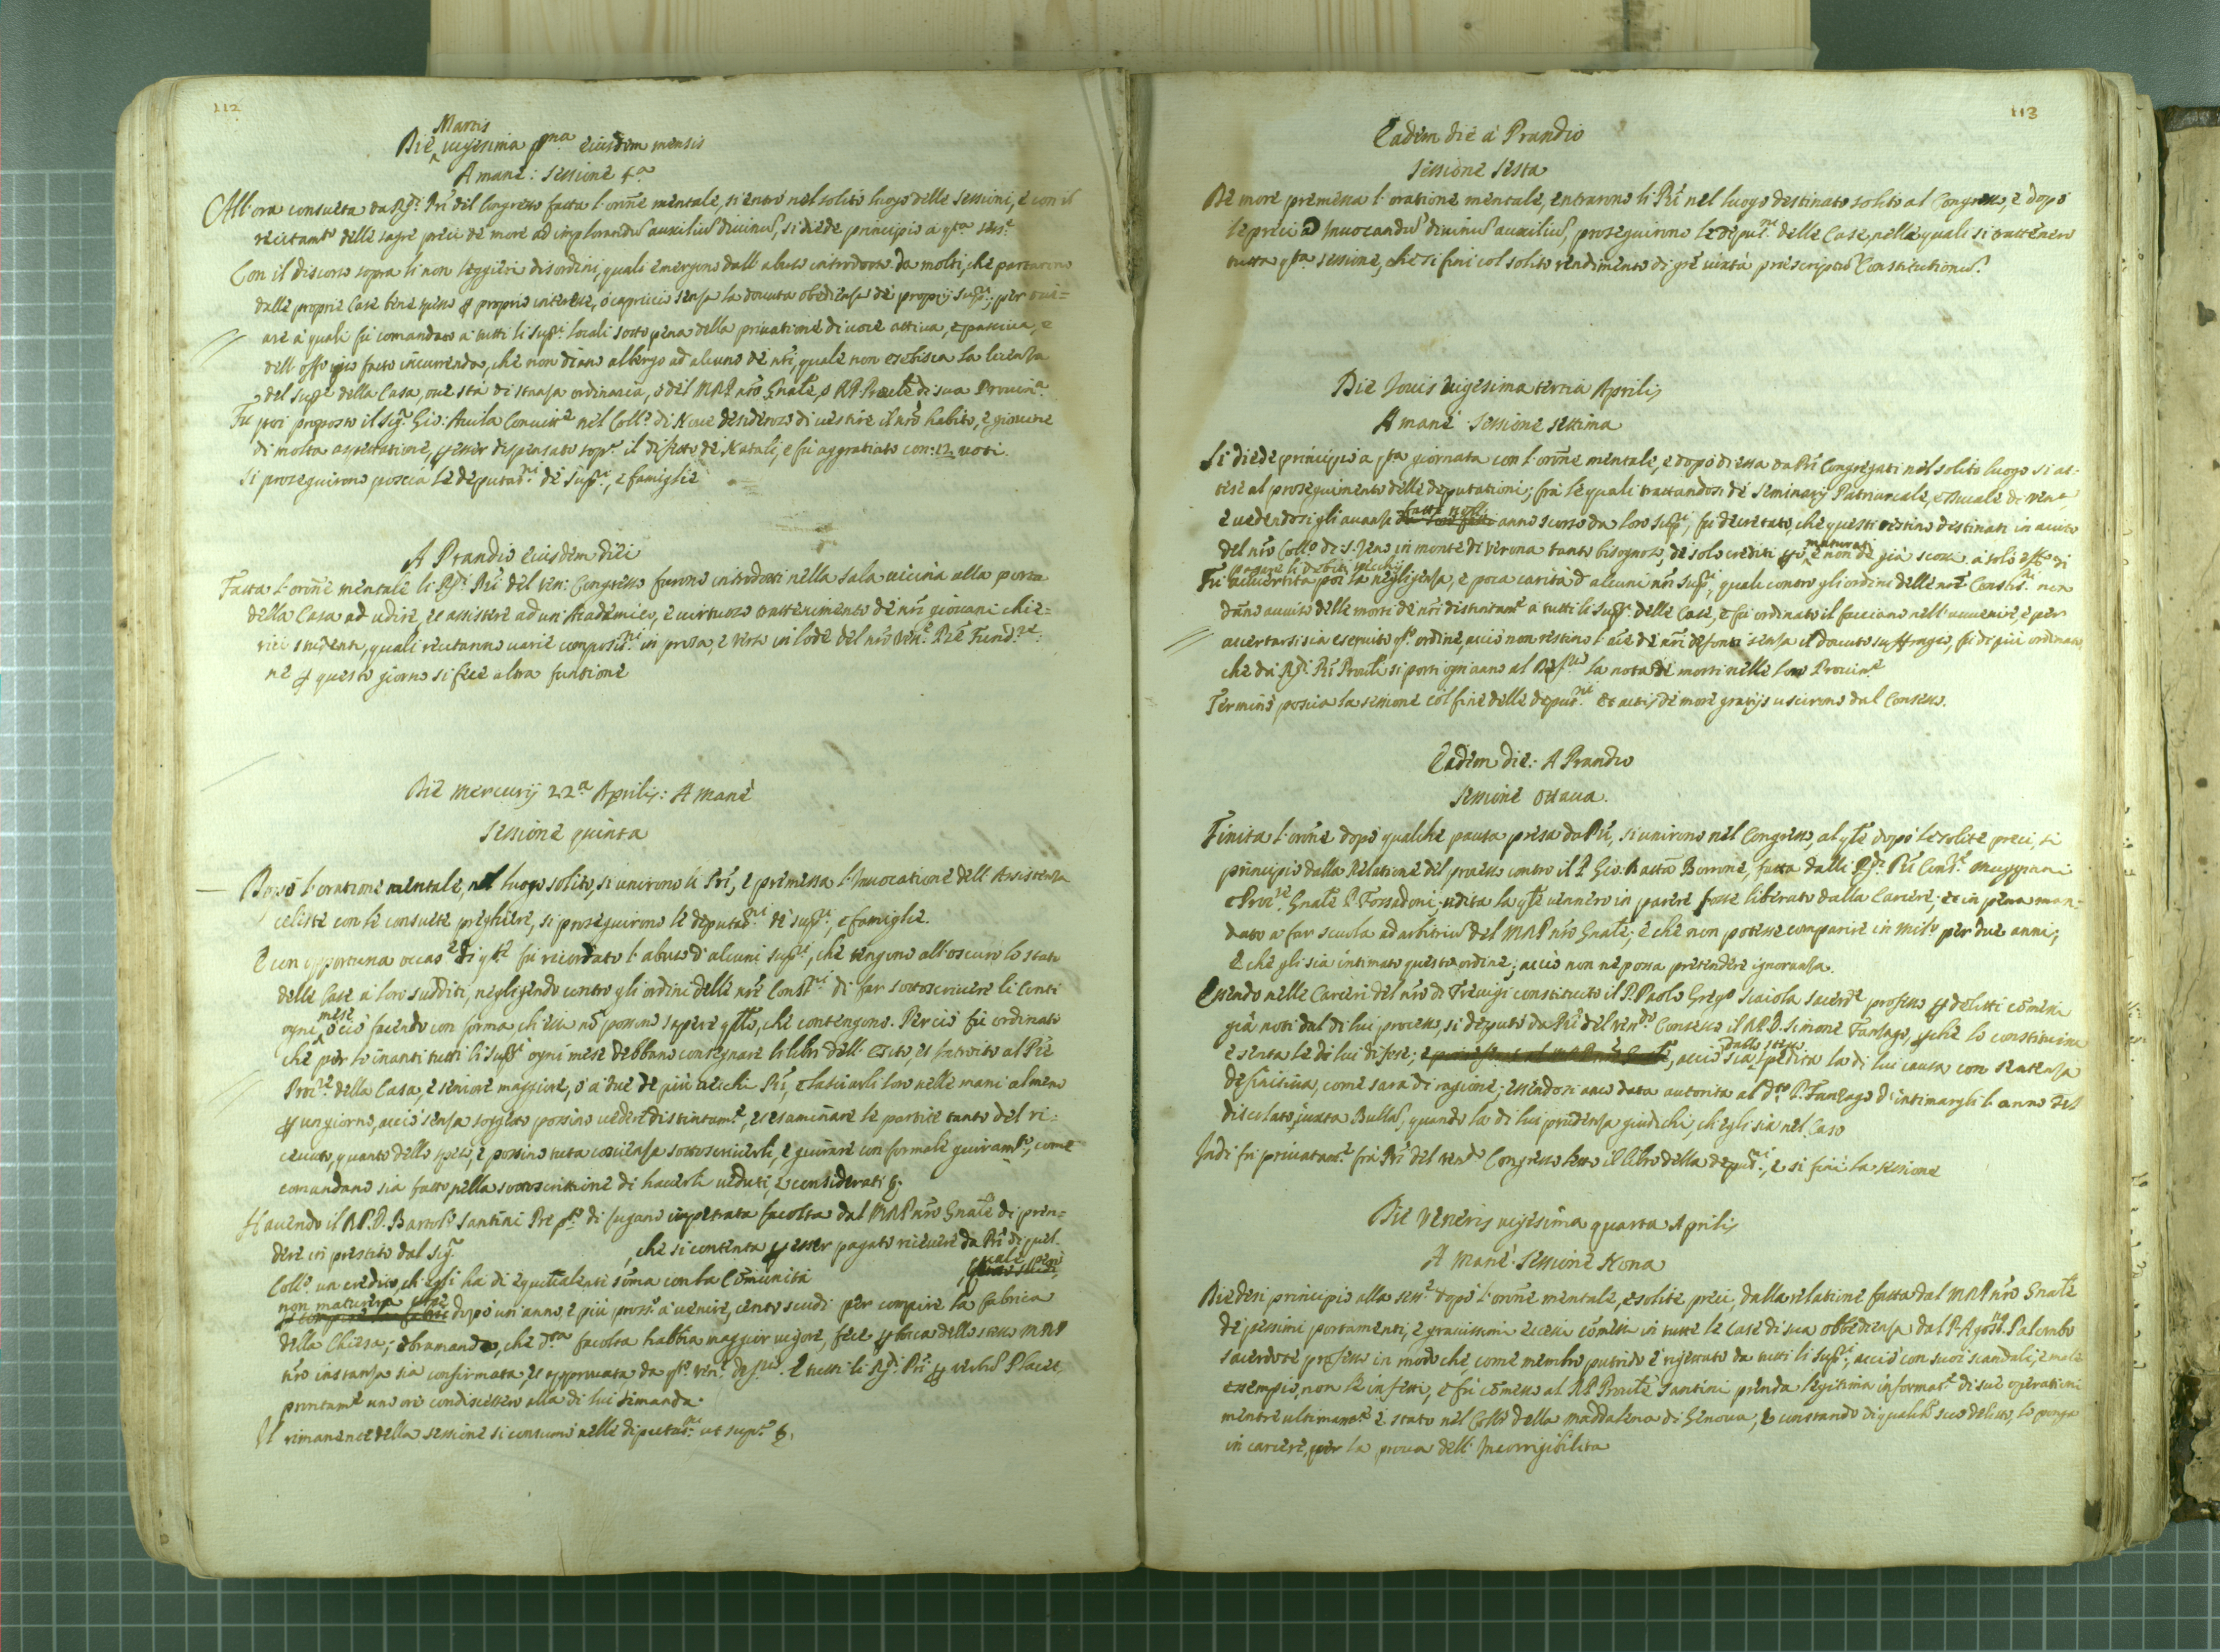 112
Martis
Die vigesima pma eiusdem mensis
A mane: sessione 4a
All'ora consueta da Rdi Pri del Congresso facta l'orõne mentale, si entrò nel solito luogo delle sessioni, e con il
recitamto delle sagre preci de more ad implorandũ auxiliũ divinũ, si diede principio a qta sesse
Con il discorso sopra li non leggieri disordini, quali emergono dall'abuso introdotto da molti, che partirono
dalle proprie Case bene spesso p proprio interesse, o capriccio senza la dovuta obedienza de proprij Supri; per ovi=
are a quali fù comandato a tutti li Supri locali sotto pena della privatione di voce attiva, e passiva, e
dell'offo ipso facto incurrenda, che non diano albergo ad alcuno de nri, quale non esebisca la licenza
del Supre della Casa, ove stà di stanza ordinaria, o del MRP nro Gnale, o RP Prale di sua Provina
Fù poi proposto il Sigr Gio: Avila Convitte nel Collo di Nove desideroso di vestire il nro habito, e giovine
di molta aspettatione, p esser dispensato sopra il difetto de Natali, e fù aggratiato con: 12 voti.
Si proseguirono poscia le deputatni de Supri, e famiglie
A Prandio eiusdem diei
Fatta l'orõne mentale li Rdi Pri del Ven: Congresso furono introdotti nella sala vicina alla porta
della Casa ad udire, et assistere ad un'Academico, e virtuoso trattenimento de nri giovani chie=
rici studenti, quali recitanno varie compositni in prosa, e verso in lode del nro Vene Pre Fundre:
ne p questo giorno si fece altra funtione
Die Mercurij 22a Aprilis: A mane
Sessione quinta
l'oratione mentale, nel luogo solito, si unirono li Pri, e premessa l'Invocatione dell'Assistenza
celeste con le consuete preghiere, si proseguirono le deputatni de supri, e famiglie.
E con opportuna occase di qte fù ricordato l'abuso d'alcuni supri, che tengono all'oscuro lo stato
delle Case a loro sudditi, negligendo contro gli ordini delle nre Constni di far sottoscrivere li Conti
mese
ogni, o ciò facendo con forma ch'essi nõ possino sapere qllo, che contengono. Perciò fù ordinato
che per lo inanti tutti li Supri ogni mese debbano consegnare li libri dell'esito, et introito al Pre
Proire della Casa, e seniore maggiore, o a due de più vecchi Pri, e lasciarli loro nelle mani almeno
p un giorno, acciò senza soggetto possino vedere distintamte, et esaminare le partite tanto del ri=
cevuto, quanto dello speso, e possino tuta coscienza sottoscriverli, e giurare con formale giuramto, come
comandano sia fatto nella sottoscrittione di haverli veduti, e considerati &.
Havendo il RP.D. Bartolo Santini Pre pto di Lugano impetrata facolta dal MRP nro Gnale di pren=
dere in prestito dal Sigr , che si contenta p esser pagato ricevere da Pri di quel
Collo un credito, ch'essi ha di equivalente sõma con la Cõmunità , quale però
non maturerà se
dopò un anno, e più prossi a venire, cento scudi per compire la fabrica
della Chiesa; e bramando, che dta facolta habbia maggior vigore, fece p boca dello stesso MRP
nro instanza sia confirmata, et approvata da qto Vene Defrio. E tutti li Rdi Pri p verbũ Placet,
prontamte uno ore condiscesero alla di lui dimanda.
Il rimanente della sessione si consumò nelle deputatni ut supra &.
113
Eadem die a Prandio
Sessione Sesta
De more premessa l'oratione mentale, entrarono li Pri nel luogo destinato solito al Congresso, e dopò
le preci ad Invocandũ divinũ auxiliũ, proseguirono le deputni delle Case, nelle quali si trattenero
tutta qta sessione, che si finì col solito rendimento di gre iuxta prescriptũ Constitutionũ.
Die Jovis Vigesima tertia Aprilis
A mane Sessione Settima
Si diede principio a qta giornata con l'orõne mentale, e dopò d'essa da Pri Congregati nel solito luogo si at=
tese al proseguimento delle deputationi; frà le quali trattandosi de Seminarij Patriarcale, e Ducale di Vena
fatti nell'
e vedendosi gli avanzi anno scorso da loro Supri, fù decretato, che questi restino destinati in aiuto
maturati
del nro Collo di S. Zeno in monte di Verona tanto bisognoso, de solo crediti però e non de già scossi a solo effo di
pagare li debiti vecchi
Fù avvertita poi la negligenza, e poca carità d'alcuni nri Supri, quali contro gli ordini delle nre Constitni non
dano avviso delle morti de nri distintamte a tutti li Supri delle Case, e fù ordinato il facciano nell'avvenire, e per
accertarsi sia eseguito qto ordine, acciò non restino l'aie de nri defonti senza il dovuto suffragio, fù di più ordinato,
che da Rdi Pri Prouli si porti ogn'anno al Defrio la nota de morti nelle loro Provine
Terminò poscia la sessione col fine delle deputni Et actis de more gratijs uscirono dal Consesso.
Eadem die: A Prandio
Sessione Ottava.
Finita l'orõne dopò qualche pausa presa da Pri, si unirono nel Congresso, al qle dopò le solite preci, si
principiò dalla Relatione del processo contro il P. Gio: Batta Borrone, fatta dalli Rdi Pri Consri Muggiani
e Procre Gnale P. Fossadoni; udita la qle vennero in parere fosse liberato dalla Carcere; et in pena man=
dato a far scuola ad arbitriũ del MRP nro Gnale; e che non potesse comparire in Milo per due anni;
e che gli sia intimato questo ordine; acciò non ne possa pretendere ignoranza.
Essendo nelle Carceri del nro di Trevigi constituito il P. Paolo Grego Scaiola Sacerde professo p delitti cõmessi
già noti dal di lui processo, si deputò da Pri del Vendo Consesso il RP.D. Simone Fanzago, pche lo constituisca
dallo stesso
e senta le di lui difese; acciò sia spedita la di lui causa con sentenza
definitiva, come sarà di ragione; essendosi anco data autorità al do P. Fanzago d'intimargli l'anno del
disculato iuxta Bullas, quando la di lui prudenza giudichi, ch'egli sia nel Caso
Indi fù privatamte frà Pri del Vendo Congresso letto il libro della deputni, e si finì la sessione
Die Veneris vigesima quarta Aprilis
A mane Sessione Nona
Diedesi principio alla sesse dopò l'orõne mentale, e solite preci, dalla relatione fatta dal MRP nro Gnale
de pessimi portamenti, e gravissimi eccessi cõmessi in tutte le Case di sua obbedienza dal P. Agosto Palombo
sacerdote professo in modo che, come membro putrido è rigettato da tutti li Supri, acciò con suoi scandali, e male
essempio, non le infetti, e fù cõmesso al RP Prale Santini prenda legitima informate di sue operationi
mentre ultimamte è stato nel Collo della Maddalena di Genova, e constando di qualche suo delitto, lo ponga
in carcere, per la prova dell'Incorrigibilità